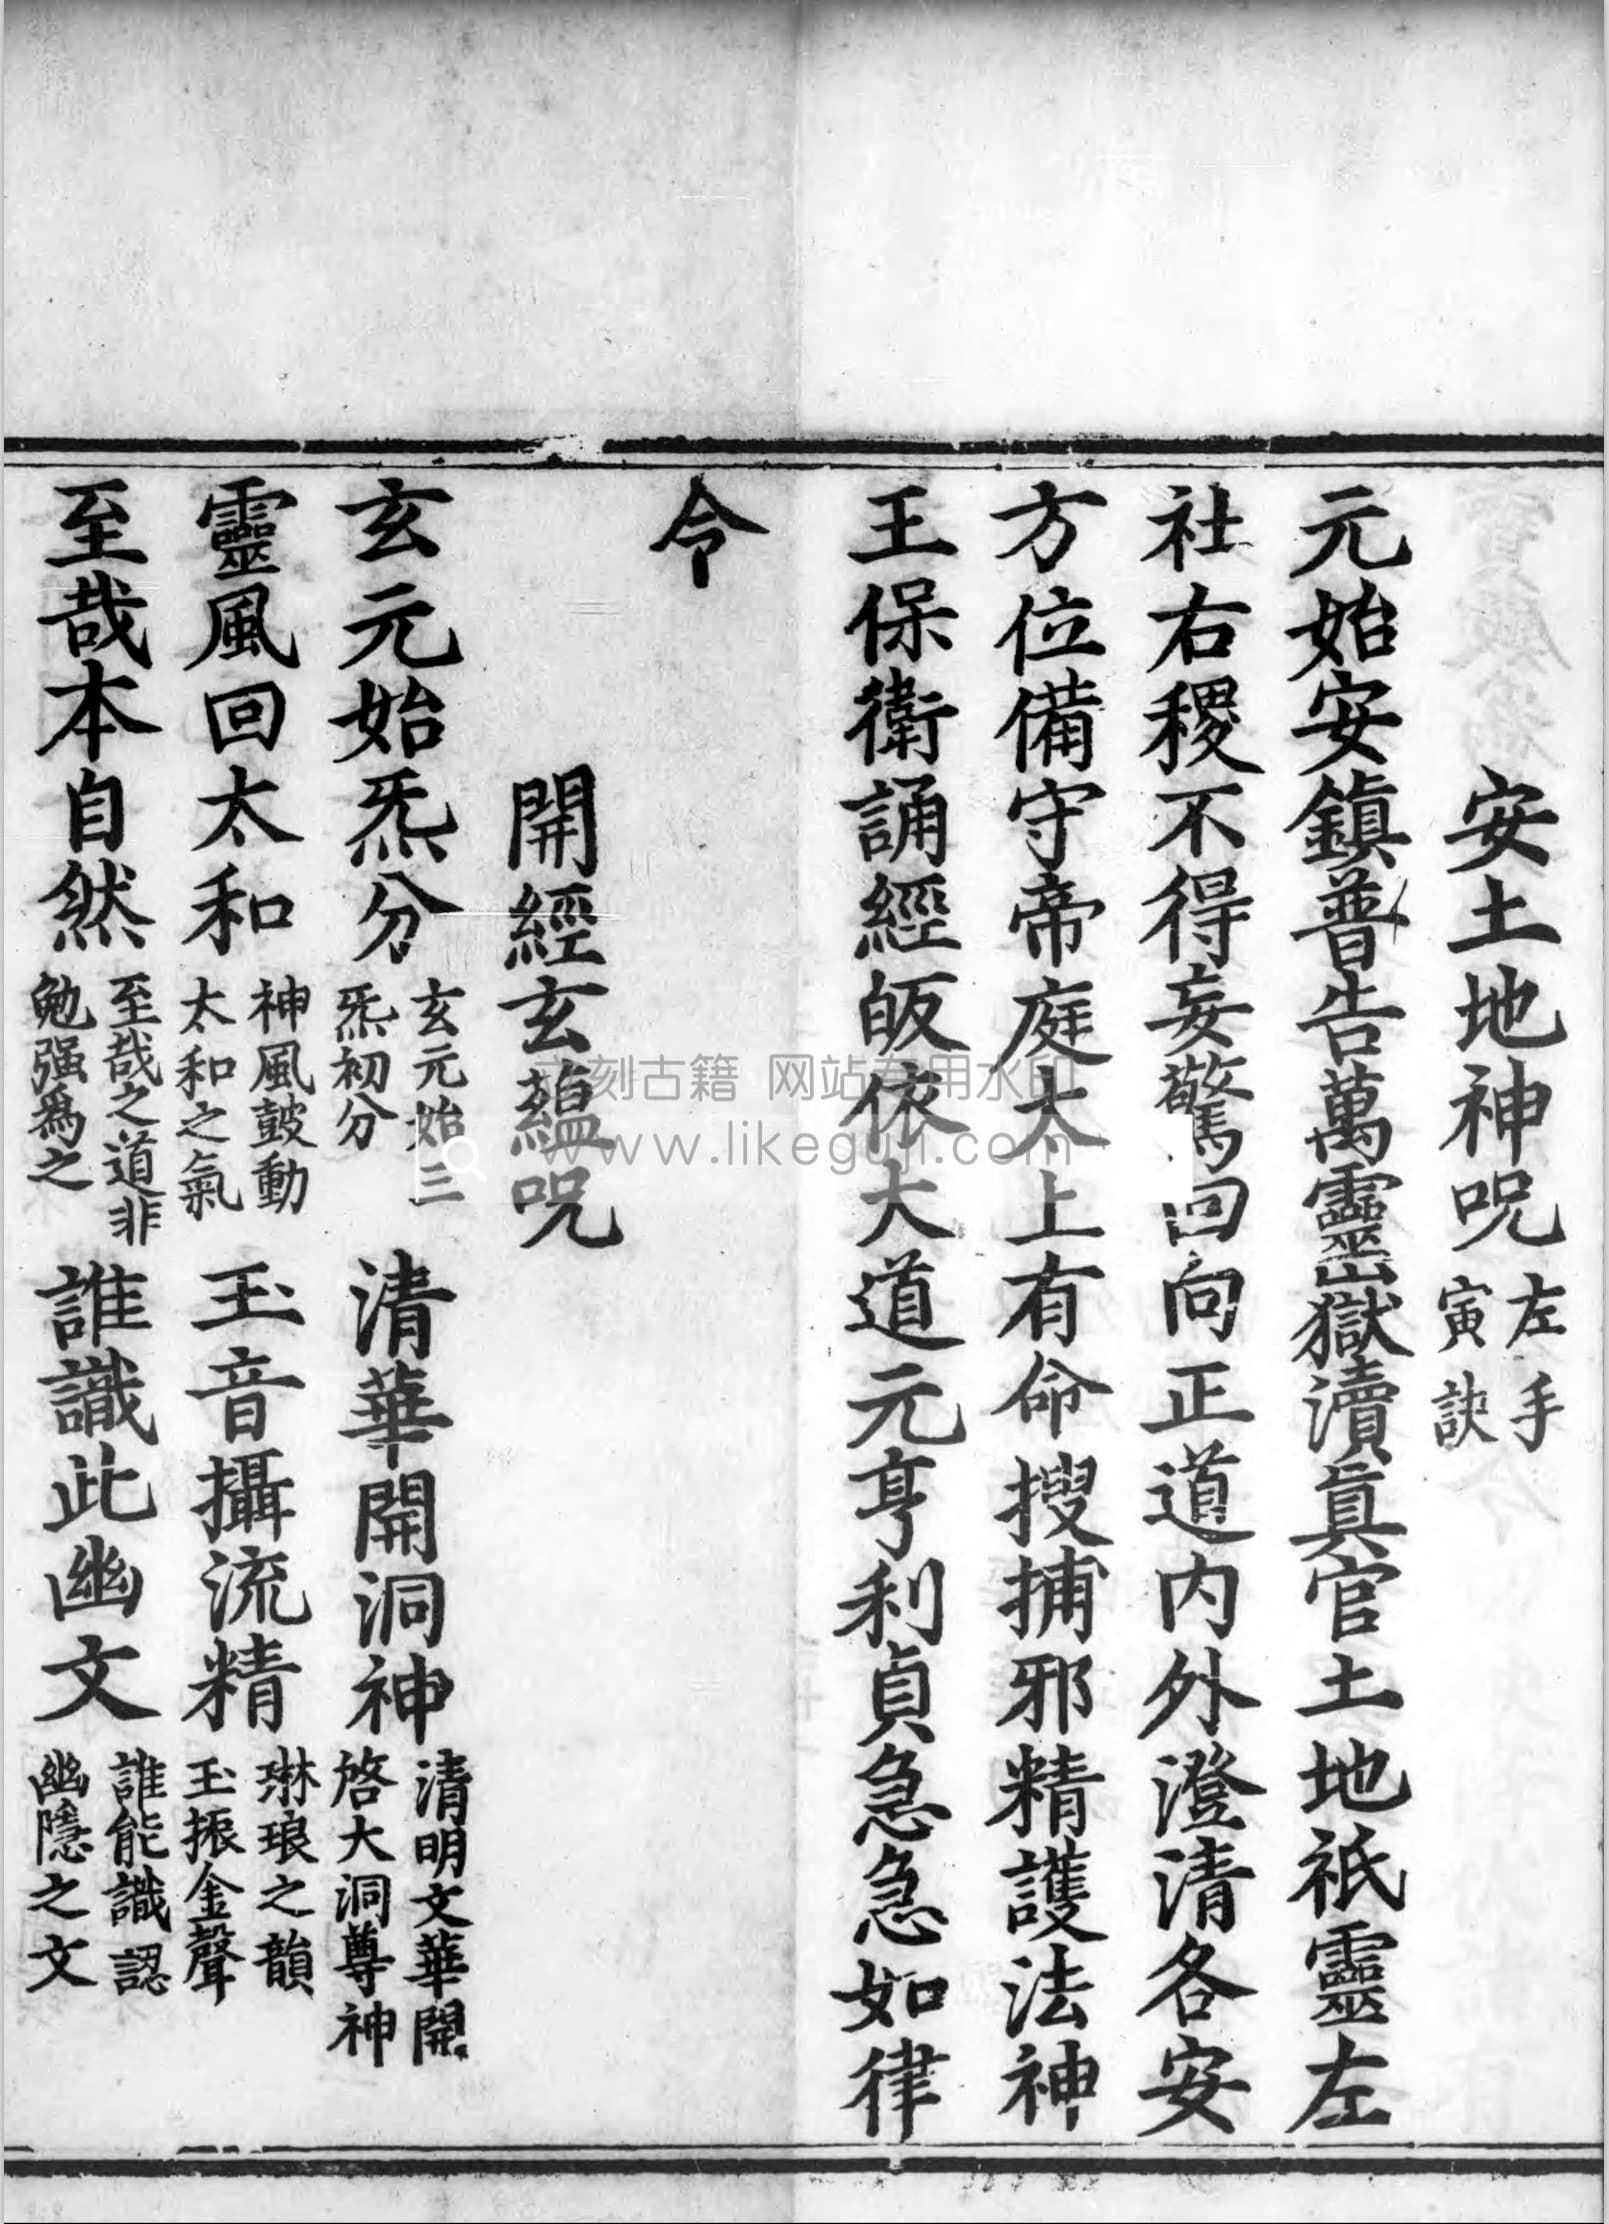 安土地神呪 左手寅訣
元始安鎮普告萬靈嶽瀆眞官土地祇靈左
社右稷不得妄驚回向正道内外澄清各安
方位備守帝庭太上有命搜捕邪精護法神
王保衛誦經皈依大道元亨利貞急急如律
令
開經玄蘊呪
玄元始炁分 玄元始三炁初分 清華開洞神 清明文華開啓大洞尊神
靈風回太和 神風鼓動太和之氣 玉音攝流精 琳琅之韻玉振金聲
至哉本自然 至哉之道非勉强爲之 誰識此幽文 誰能識認幽隱之文
刻古籍 网站专用水印
www.likeguji.com